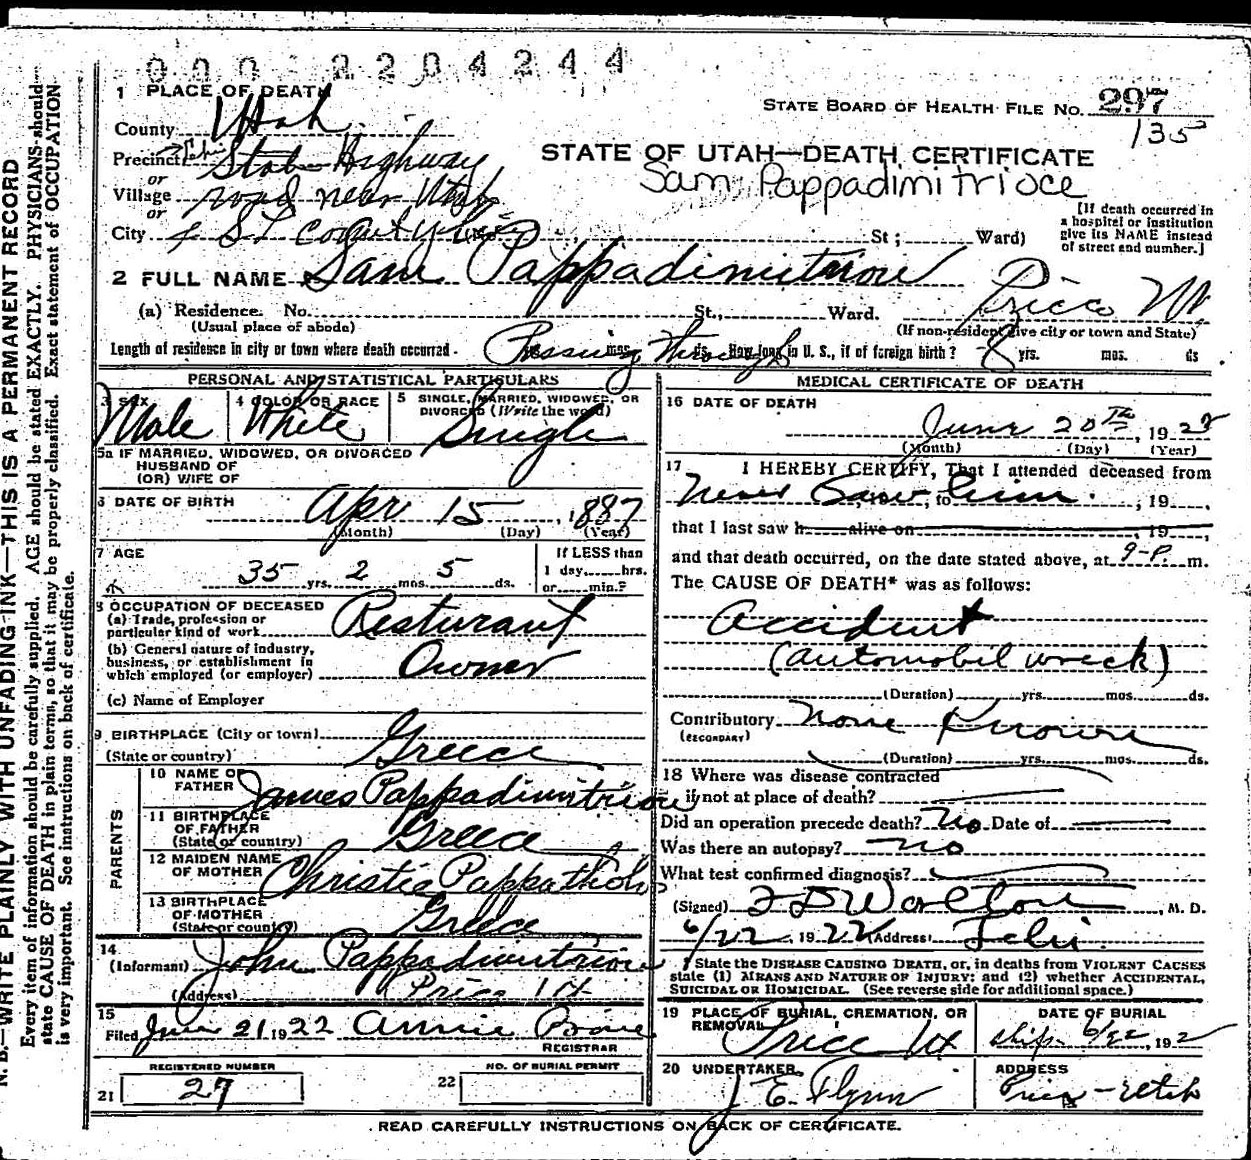 000 2204244
1 PLACE OF DEATH
STATE BOARD OF HEALTH FILE No. 297
135
County Utah
STATE OF UTAH—DEATH CERTIFICATE
Sam Pappadimitrioce
Precinct State Highway
or
Village road near Utah
or
City & SL County line St; Ward)
[If death occurred in a hospital or institution give its NAME instead of street and number.]
2 FULL NAME Sam Pappadimitriou
(a) Residence. No. St., Ward. Price Ut
(Usual place of abode) (If non-resident give city or town and State)
Length of residence in city or town where death occurred Passing Through yrs. mos. ds. How long in U. S., if of foreign birth? 8 yrs. mos. ds
PERSONAL AND STATISTICAL PARTICULARS
3 SEX Male
4 COLOR OR RACE White
5 SINGLE, MARRIED, WIDOWED, OR DIVORCED (Write the word) Single
5a IF MARRIED, WIDOWED, OR DIVORCED
HUSBAND OF
(OR) WIFE OF
6 DATE OF BIRTH Apr 15, 1887
(Month) (Day) (Year)
7 AGE 35 yrs. 2 mos. 5 ds.
If LESS than 1 day hrs. or min.?
8 OCCUPATION OF DECEASED
(a) Trade, profession or particular kind of work Resturant
(b) General nature of industry, business, or establishment in which employed (or employer) Owner
(c) Name of Employer
9 BIRTHPLACE (City or town)
(State or country) Greece
PARENTS
10 NAME OF FATHER James Pappadimitriou
11 BIRTHPLACE OF FATHER (State or country) Greece
12 MAIDEN NAME OF MOTHER Christie
13 BIRTHPLACE OF MOTHER (State or country) Greece
14 (Informant) John Pappadimitriou
(Address) Price Ut
15 Filed June 21 1922 Annie
REGISTRAR
REGISTERED NUMBER
21 27
NO. OF BURIAL PERMIT
22
MEDICAL CERTIFICATE OF DEATH
16 DATE OF DEATH
June 20TH, 1922
(Month) (Day) (Year)
17 I HEREBY CERTIFY, That I attended deceased from
Never Saw him, to, 19,
that I last saw h alive on, 19,
and that death occurred, on the date stated above, at 9-P. m.
The CAUSE OF DEATH* was as follows:
Accident
(automobil wreck)
(Duration) yrs. mos. ds.
Contributory None Known
(SECONDARY)
(Duration) yrs. mos. ds.
18 Where was disease contracted
if not at place of death?
Did an operation precede death? No Date of
Was there an autopsy? No
What test confirmed diagnosis?
(Signed) , M. D.
6/22, 1922 (Address) Lehi
* State the DISEASE CAUSING DEATH, or, in deaths from VIOLENT CAUSES state (1) MEANS AND NATURE OF INJURY; and (2) whether ACCIDENTAL, SUICIDAL OR HOMICIDAL. (See reverse side for additional space.)
19 PLACE OF BURIAL, CREMATION, OR REMOVAL Price Ut
DATE OF BURIAL
ship 6/22, 192
20 UNDERTAKER J E. Flynn
ADDRESS
Price-Utah
READ CAREFULLY INSTRUCTIONS ON BACK OF CERTIFICATE.
N. B.—WRITE PLAINLY WITH UNFADING INK—THIS IS A PERMANENT RECORD
Every item of information should be carefully supplied. AGE should be stated EXACTLY. PHYSICIANS should
state CAUSE OF DEATH in plain terms, so that it may be properly classified. Exact statement of OCCUPATION
is very important. See instructions on back of certificate.